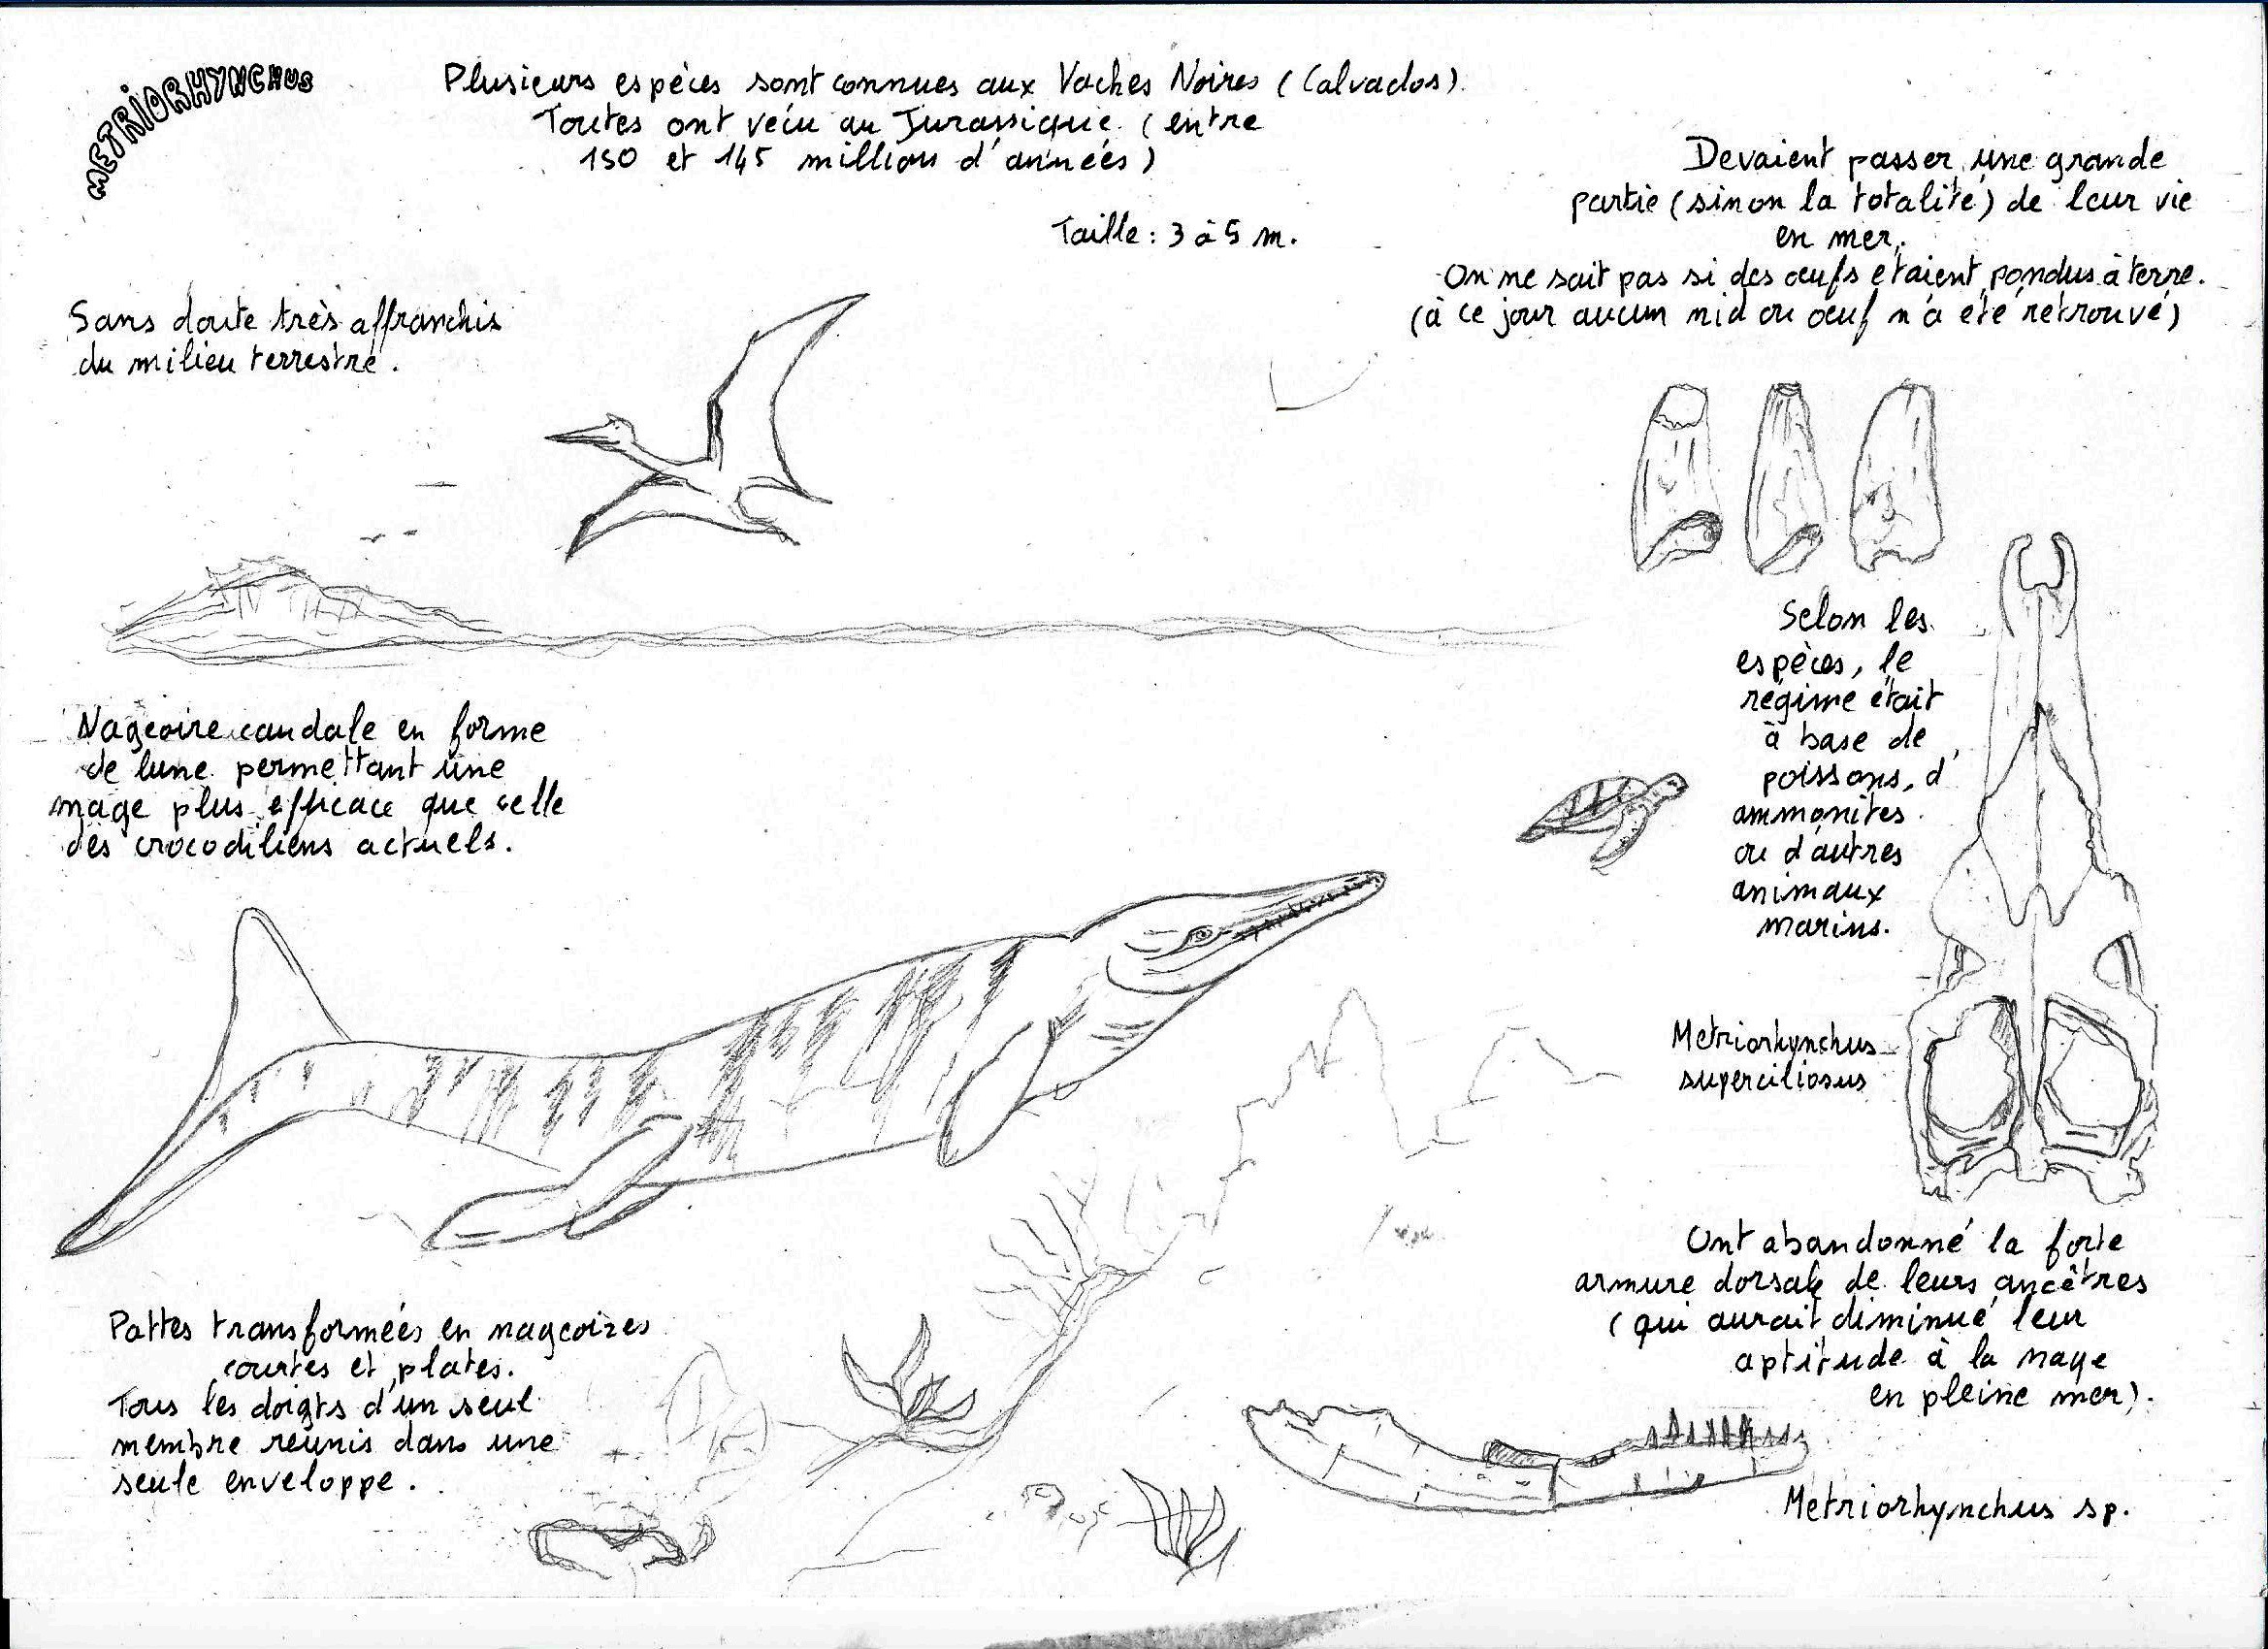 METRIORHYNCHUS
Plusieurs espèces sont connues aux Vaches Noires (Calvados).
Toutes ont vécu au Jurassique (entre
150 et 145 millions d'années)
Taille : 3 à 5 m.
Devaient passer une grande
partie (sinon la totalité) de leur vie
en mer.
On ne sait pas si des œufs étaient pondus à terre.
(à ce jour aucun nid ou œuf n'a été retrouvé)
Sans doute très affranchis
du milieu terrestre.
Selon les
espèces, le
régime était
à base de
poissons, d'
ammonites
ou d'autres
animaux
marins.
Nageoire caudale en forme
de lune permettant une
nage plus efficace que celle
des crocodiliens actuels.
Metriorhynchus
superciliosus
Ont abandonné la forte
armure dorsale de leurs ancêtres
(qui aurait diminué leur
aptitude à la nage
en pleine mer).
Pattes transformées en nageoires
courtes et plates.
Tous les doigts d'un seul
membre réunis dans une
seule enveloppe.
Metriorhynchus sp.